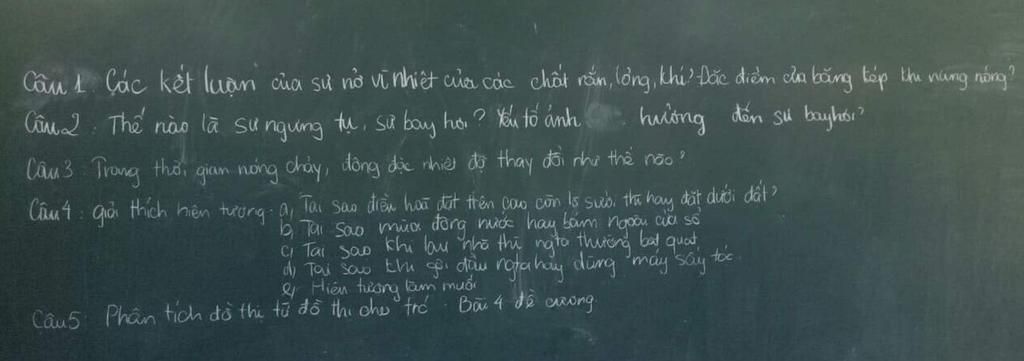 Câu 1: Các kết luận của sự nở vì nhiệt của các chất rắn, lỏng, khí? Đặc điểm của băng kép khi nung nóng?
Câu 2: Thế nào là sự ngưng tụ, sự bay hơi? Yếu tố ảnh hưởng đến sự bay hơi?
Câu 3: Trong thời gian nóng chảy, đông đặc nhiệt độ thay đổi như thế nào?
Câu 4: giải thích hiện tượng: a, Tại sao điều hoà đặt trên cao còn lò sưởi thì hay đặt dưới đất?
b, Tại sao mùa đông nước hay bám ngoài cửa sổ
c, Tại sao khi lau nhà thì ngta thường bật quạt
d, Tại sao khi gội đầu ngta hay dùng máy sấy tóc.
e, Hiện tượng làm muối
Câu 5: Phân tích đồ thị từ đồ thị cho trc. Bài 4 đề cương